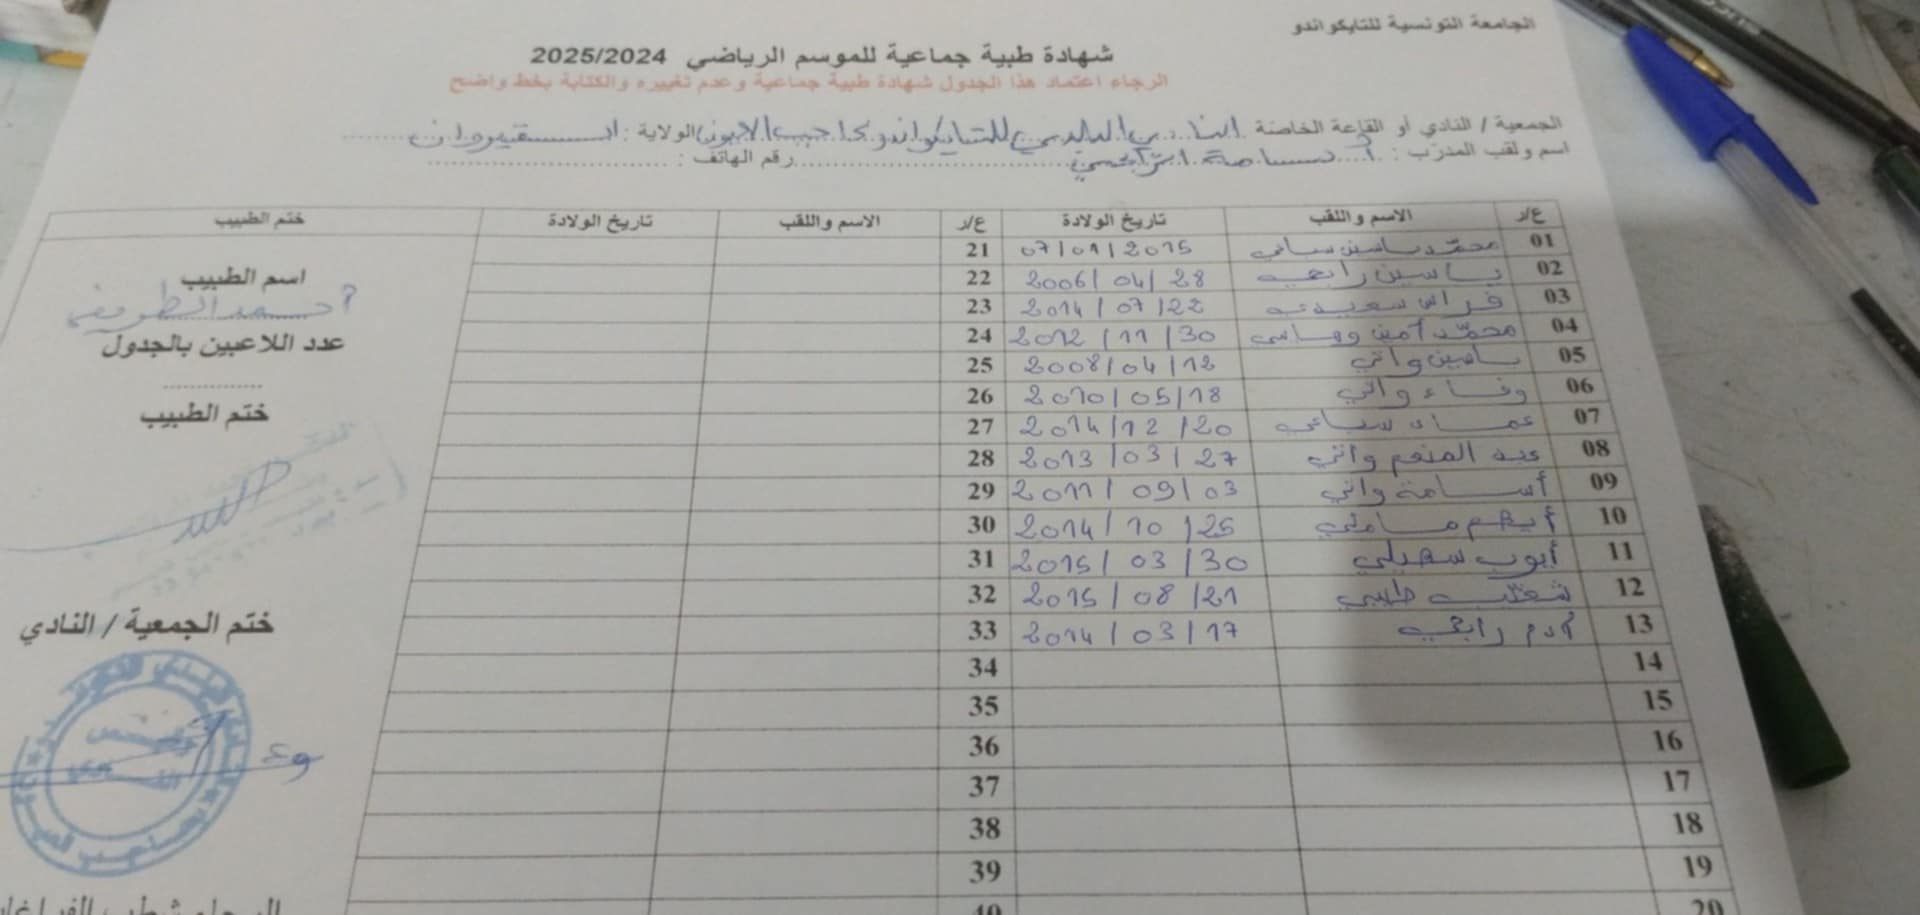 الجامعة التونسية للتايكواندو
شهادة طبية جماعية للموسم الرياضي 2025/2024
الرجاء اعتماد هذا الجدول شهادة طبية جماعية وعدم تغييره والكتابة بخط واضح
الجمعية / النادي أو القاعة الخاصة النادي البلدي للتايكواندو بحاجب العيون الولاية : القيروان
اسم ولقب المدرّب : أسامة رقم الهاتف :
ع/ر الاسم واللقب تاريخ الولادة ع/ر الاسم واللقب تاريخ الولادة ختم الطبيب
01 محمّد ياسين سباعي 07/01/2015 21
02 ياسين رابحي 2006/04/28 22
03 فراس سعيدي 2014/07/22 23
04 محمّد أمين 2012/11/30 24
05 ياسين واني 2008/04/12 25
06 وفاء واني 2010/05/18 26
07 عماد سباعي 2014/12/20 27
08 عبد المنعم واني 2013/03/27 28
09 أسامة واني 2011/09/03 29
10 أيهم 2014/10/25 30
11 أيوب سهيلي 2015/03/30 31
12 طيبي 2015/08/21 32
13 آدم رابحي 2014/03/17 33
14 34
15 35
16 36
17 37
18 38
19 39
20 40
اسم الطبيب
أحمد
عدد اللاعبين بالجدول
ختم الطبيب
ختم الجمعية / النادي